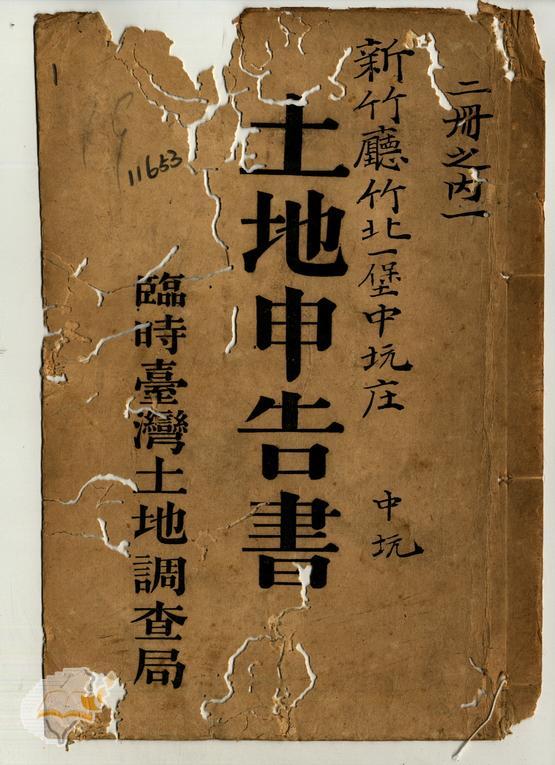 二冊之内一
新竹廳竹北一堡中坑庄
中坑
土地申告書
臨時臺灣土地調查局
11653
1